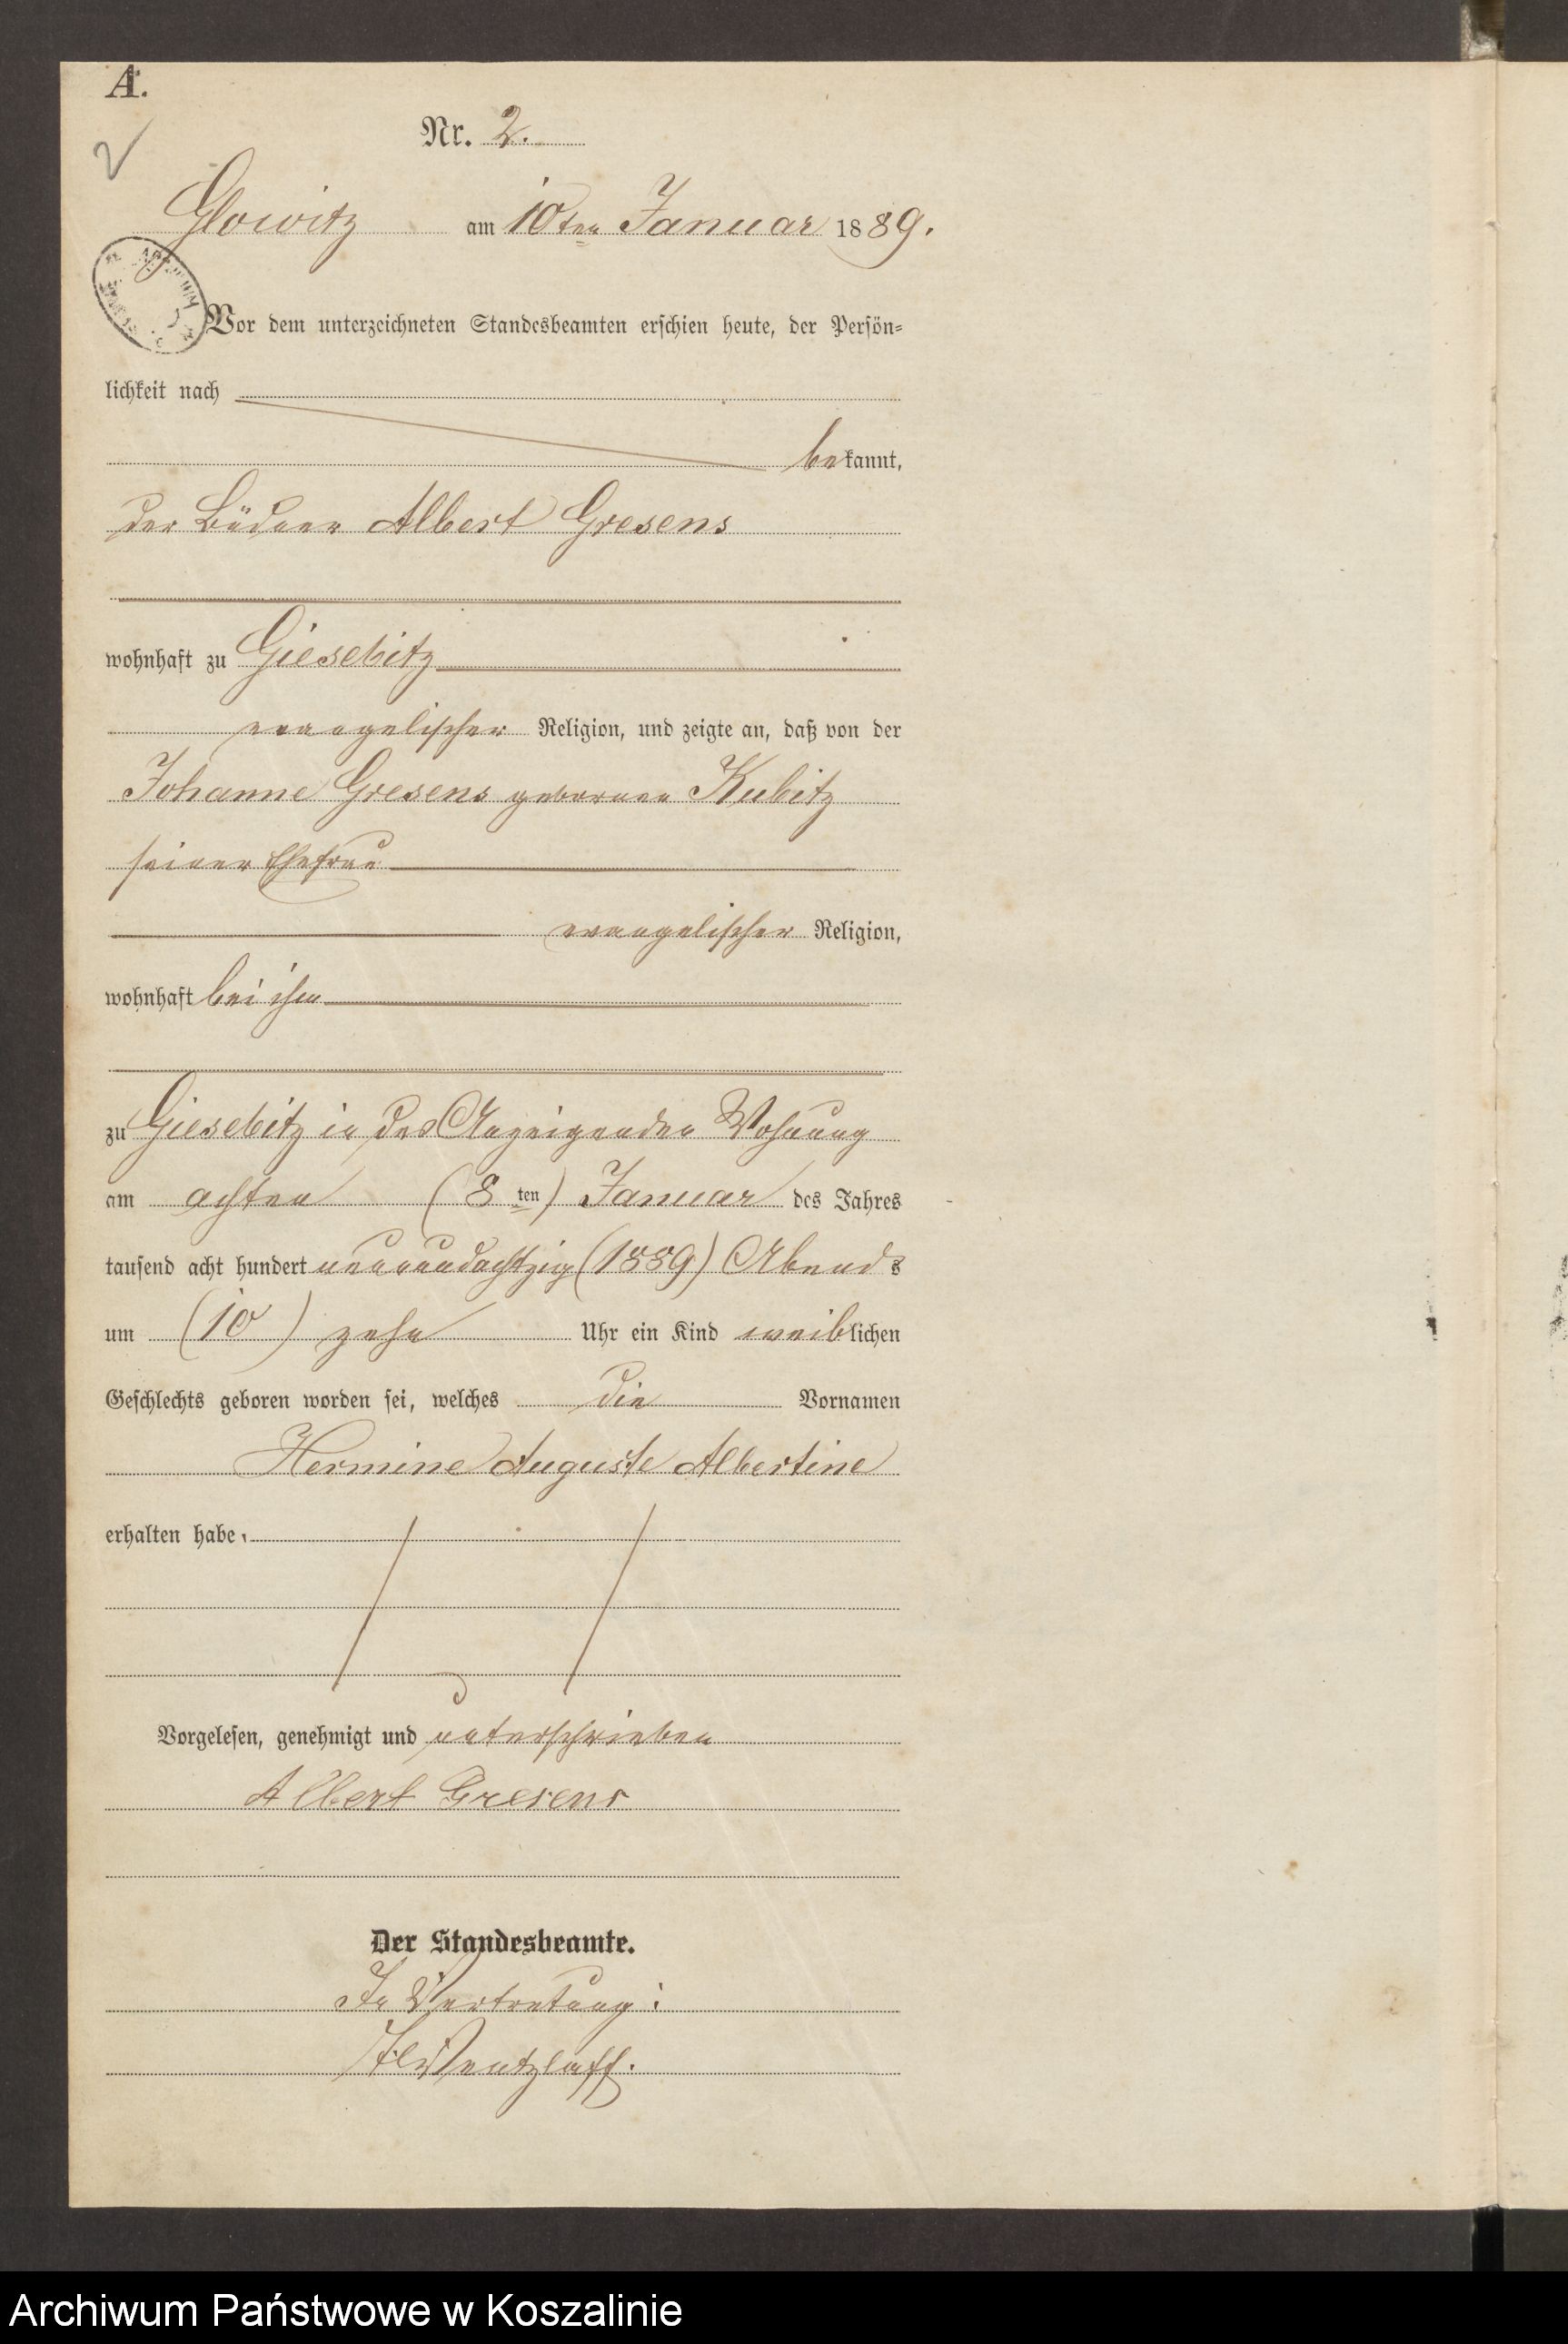 A.
Nr. 2.
2
Glowitz am 10ten Januar 1889.
Vor dem unterzeichneten Standesbeamten erschien heute, der Persön=
lichkeit nach
bekannt,
der Büdner Albert Gresens
wohnhaft zu Giesebitz
evangelischer Religion, und zeigte an, daß von der
Johanne Gresens geborenen Kubitz
seiner Ehefrau
evangelischer Religion,
wohnhaft bei ihm
zu Giesebitz in des Anzeigenden Wohnung
am achten (8ten) Januar des Jahres
tausend acht hundert neunundachtzig (1889) Abends
um (10) zehn Uhr ein Kind weiblichen
Geschlechts geboren worden sei, welches die Vornamen
Hermine Auguste Albertine
erhalten habe.
Vorgelesen, genehmigt und unterschrieben
Albert Gresens
Der Standesbeamte.
In Vertretung:
Wentzlaff.
Archiwum Państwowe w Koszalinie